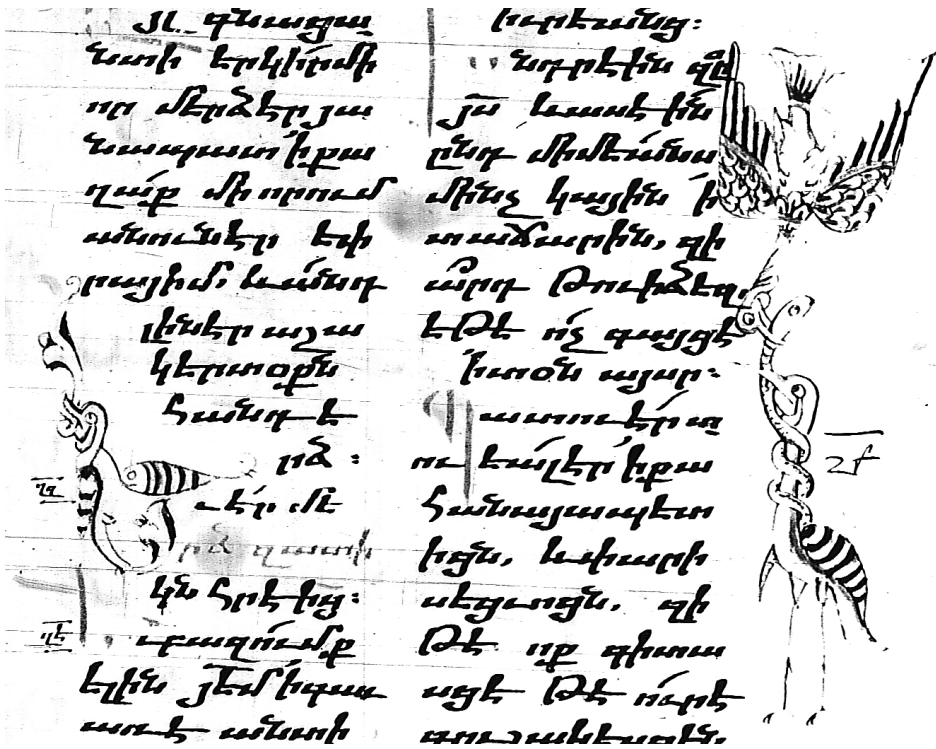 գնացա
նտի երկիրմի
որ մերձէր յա
նապատ՝ իքա
ղաք մի որում
անունէր եփ
րայիմ. եւանդ
լինէր աշա
կերտօքն
հանդե
րձ :
եւէր մե
րձ զատի
կն հրէից:
եւբազումք
ելին յէմ՝ իգաւ
առէ անտի
իրեանց:
նդրէին
յն եւասէին
ընդ միմեանս
մինչ կային ի
տաճարին. զի
արդ թուիձեզ.
եթէ ոչ գայցէ
իտօնն այսր:
ատուէր տ
ուեալէր՝ իքա
հանայապետ
իցն. եւփարի
սեցւոցն. զի
թէ ոք գիտա
սցէ թէ ուրէ